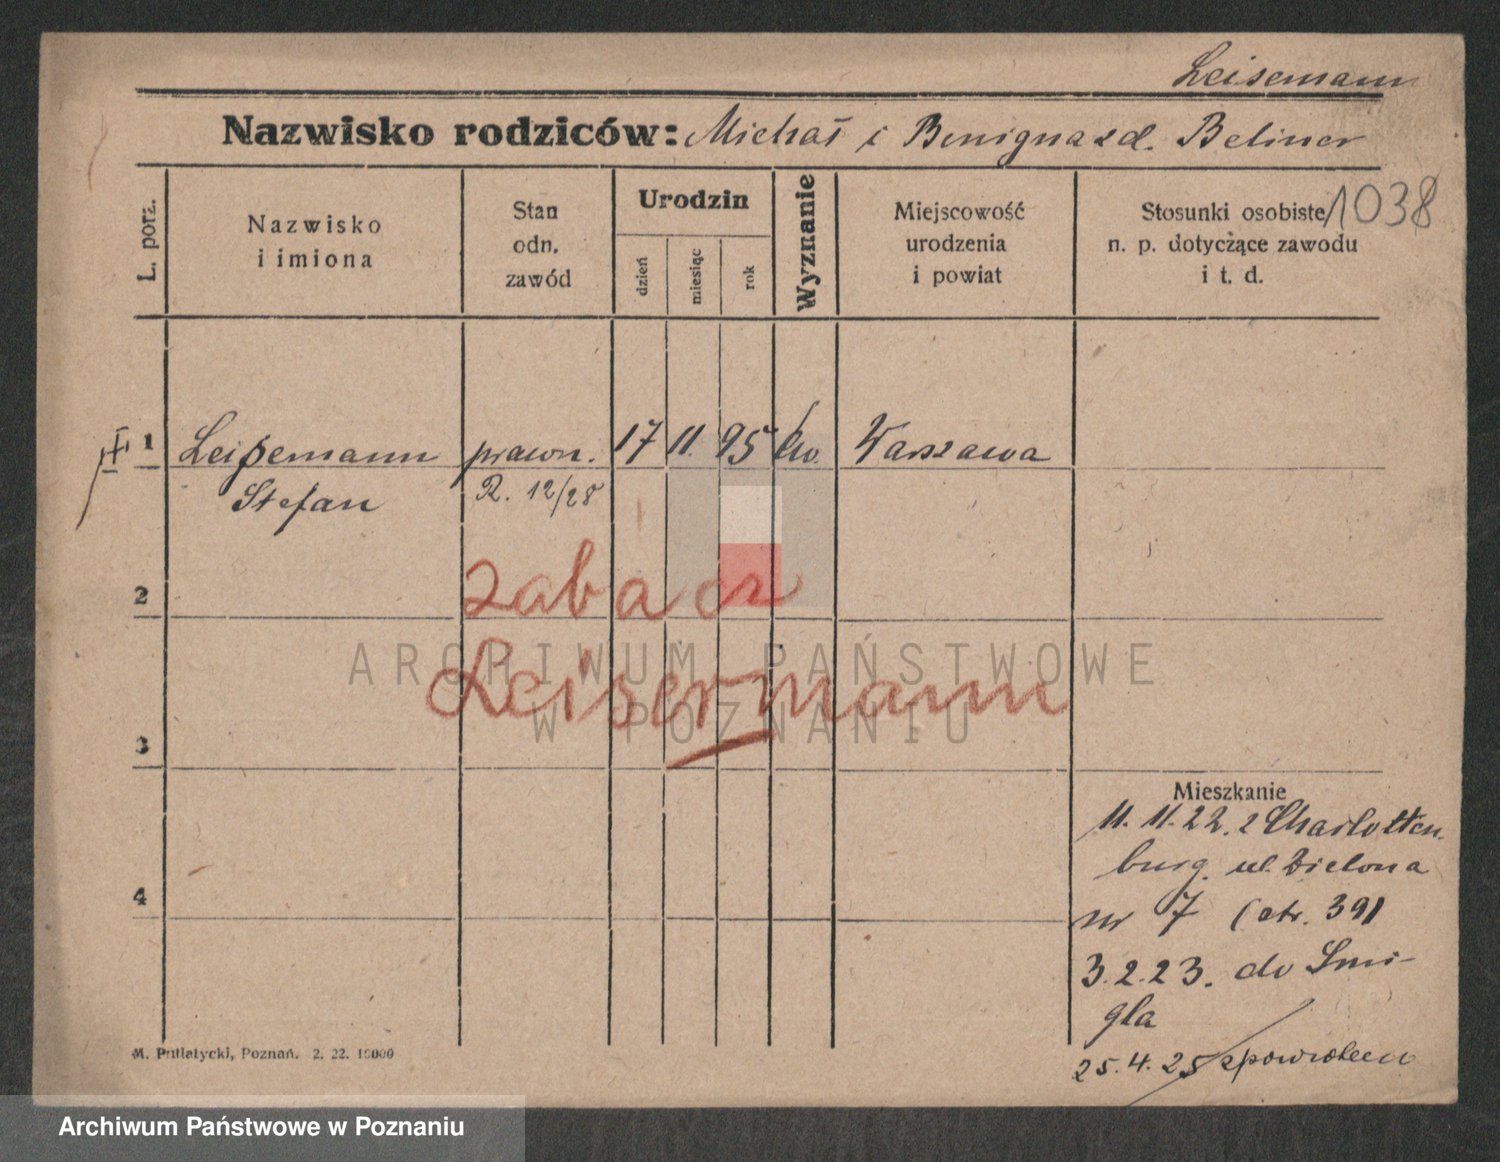 Leisemann
Nazwisko rodziców: Michał i Benigna zd. Beliner
1038
L. porz.
Nazwisko
i imiona
Stan
odn.
zawód
Urodzin
dzień
miesiąc
rok
Wyznanie
Miejscowość
urodzenia
i powiat
Stosunki osobiste
n. p. dotyczące zawodu
i t. d.
1 Leißemann prawn. 17 11. 95 Warszawa
Stefan R. 12/28
2 zobacz
Leisermann
3
4
Mieszkanie
11. 11. 22. z Charlotten
burg. ul. Zielona
nr 7 (str. 39)
3. 2. 23. do Śmi-
gla
25. 4. 25 z powrotem
M. Putiatycki, Poznań. 2. 22. 10000
ARCHIWUM PAŃSTWOWE
W POZNANIU
Archiwum Państwowe w Poznaniu